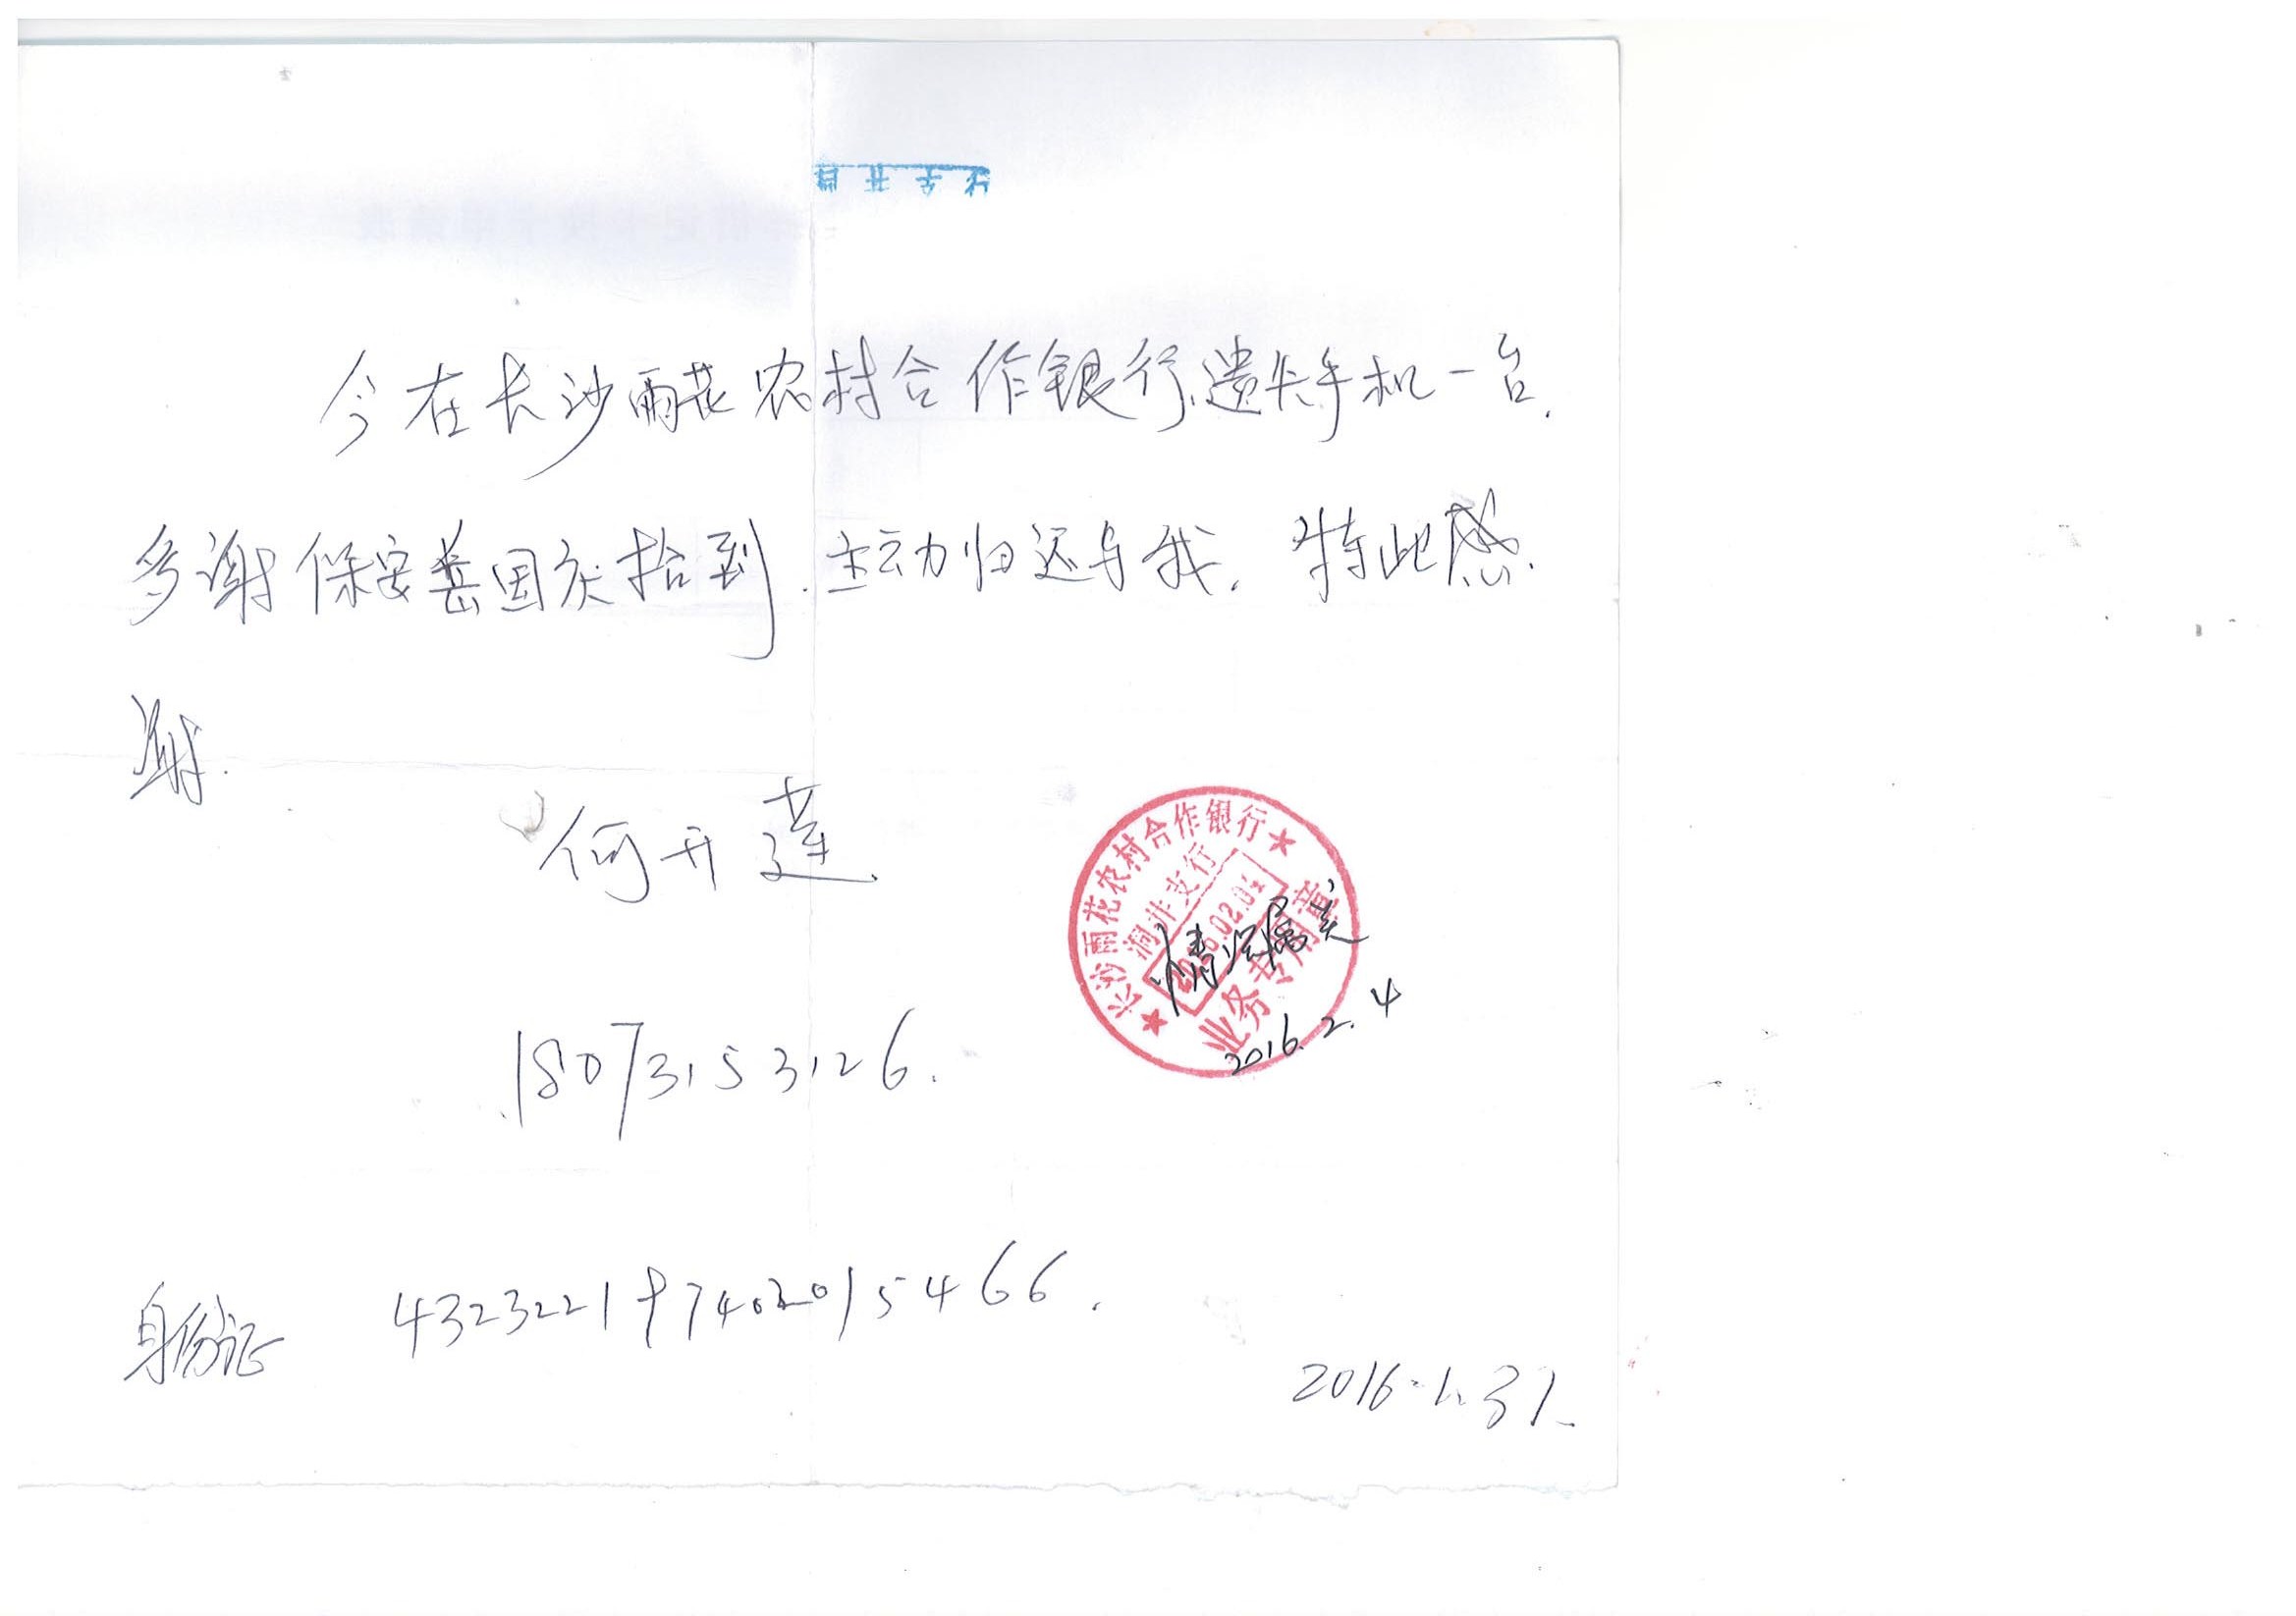 今在长沙雨花农村合作银行遗失手机一台.
多谢保安岳国庆拾到.主动归还与我.特此感
谢.
何开莲
长沙雨花农村合作银行
洞井支行
业务专用章
情况属实
2016.2.4
18073153126.
身份证 432322197402015466.
2016.1.31